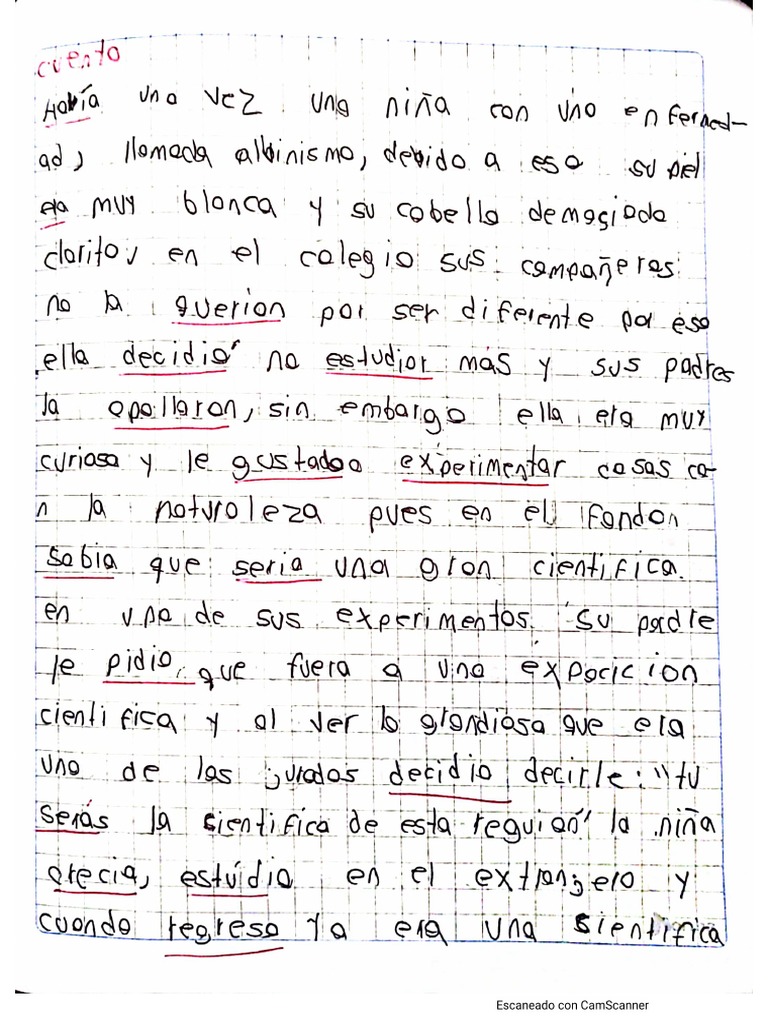 cuento
Había una vez una niña con una enfermed-
ad, llamada albinismo, debido a eso su piel
era muy blanca y su cabello demasiado
clarito, en el colegio sus compañeros
no la querian por ser diferente por eso
ella decidió no estudiar más y sus padres
la apollaron, sin embargo ella era muy
curiosa y le gustadoa experimentar cosas co-
n la naturaleza pues en el fondon
sabia que seria una gran cientifica.
en una de sus experimentos su padre
le pidio, que fuera a una exporicion
cientifica y al ver lo grandiosa que era
uno de los jurados decidio decirle: "tu
serás la sientifica de esta reguion" la niña
crecia, estúdio en el extranjero y
cuando regreso ya era una sientifica
Escaneado con CamScanner